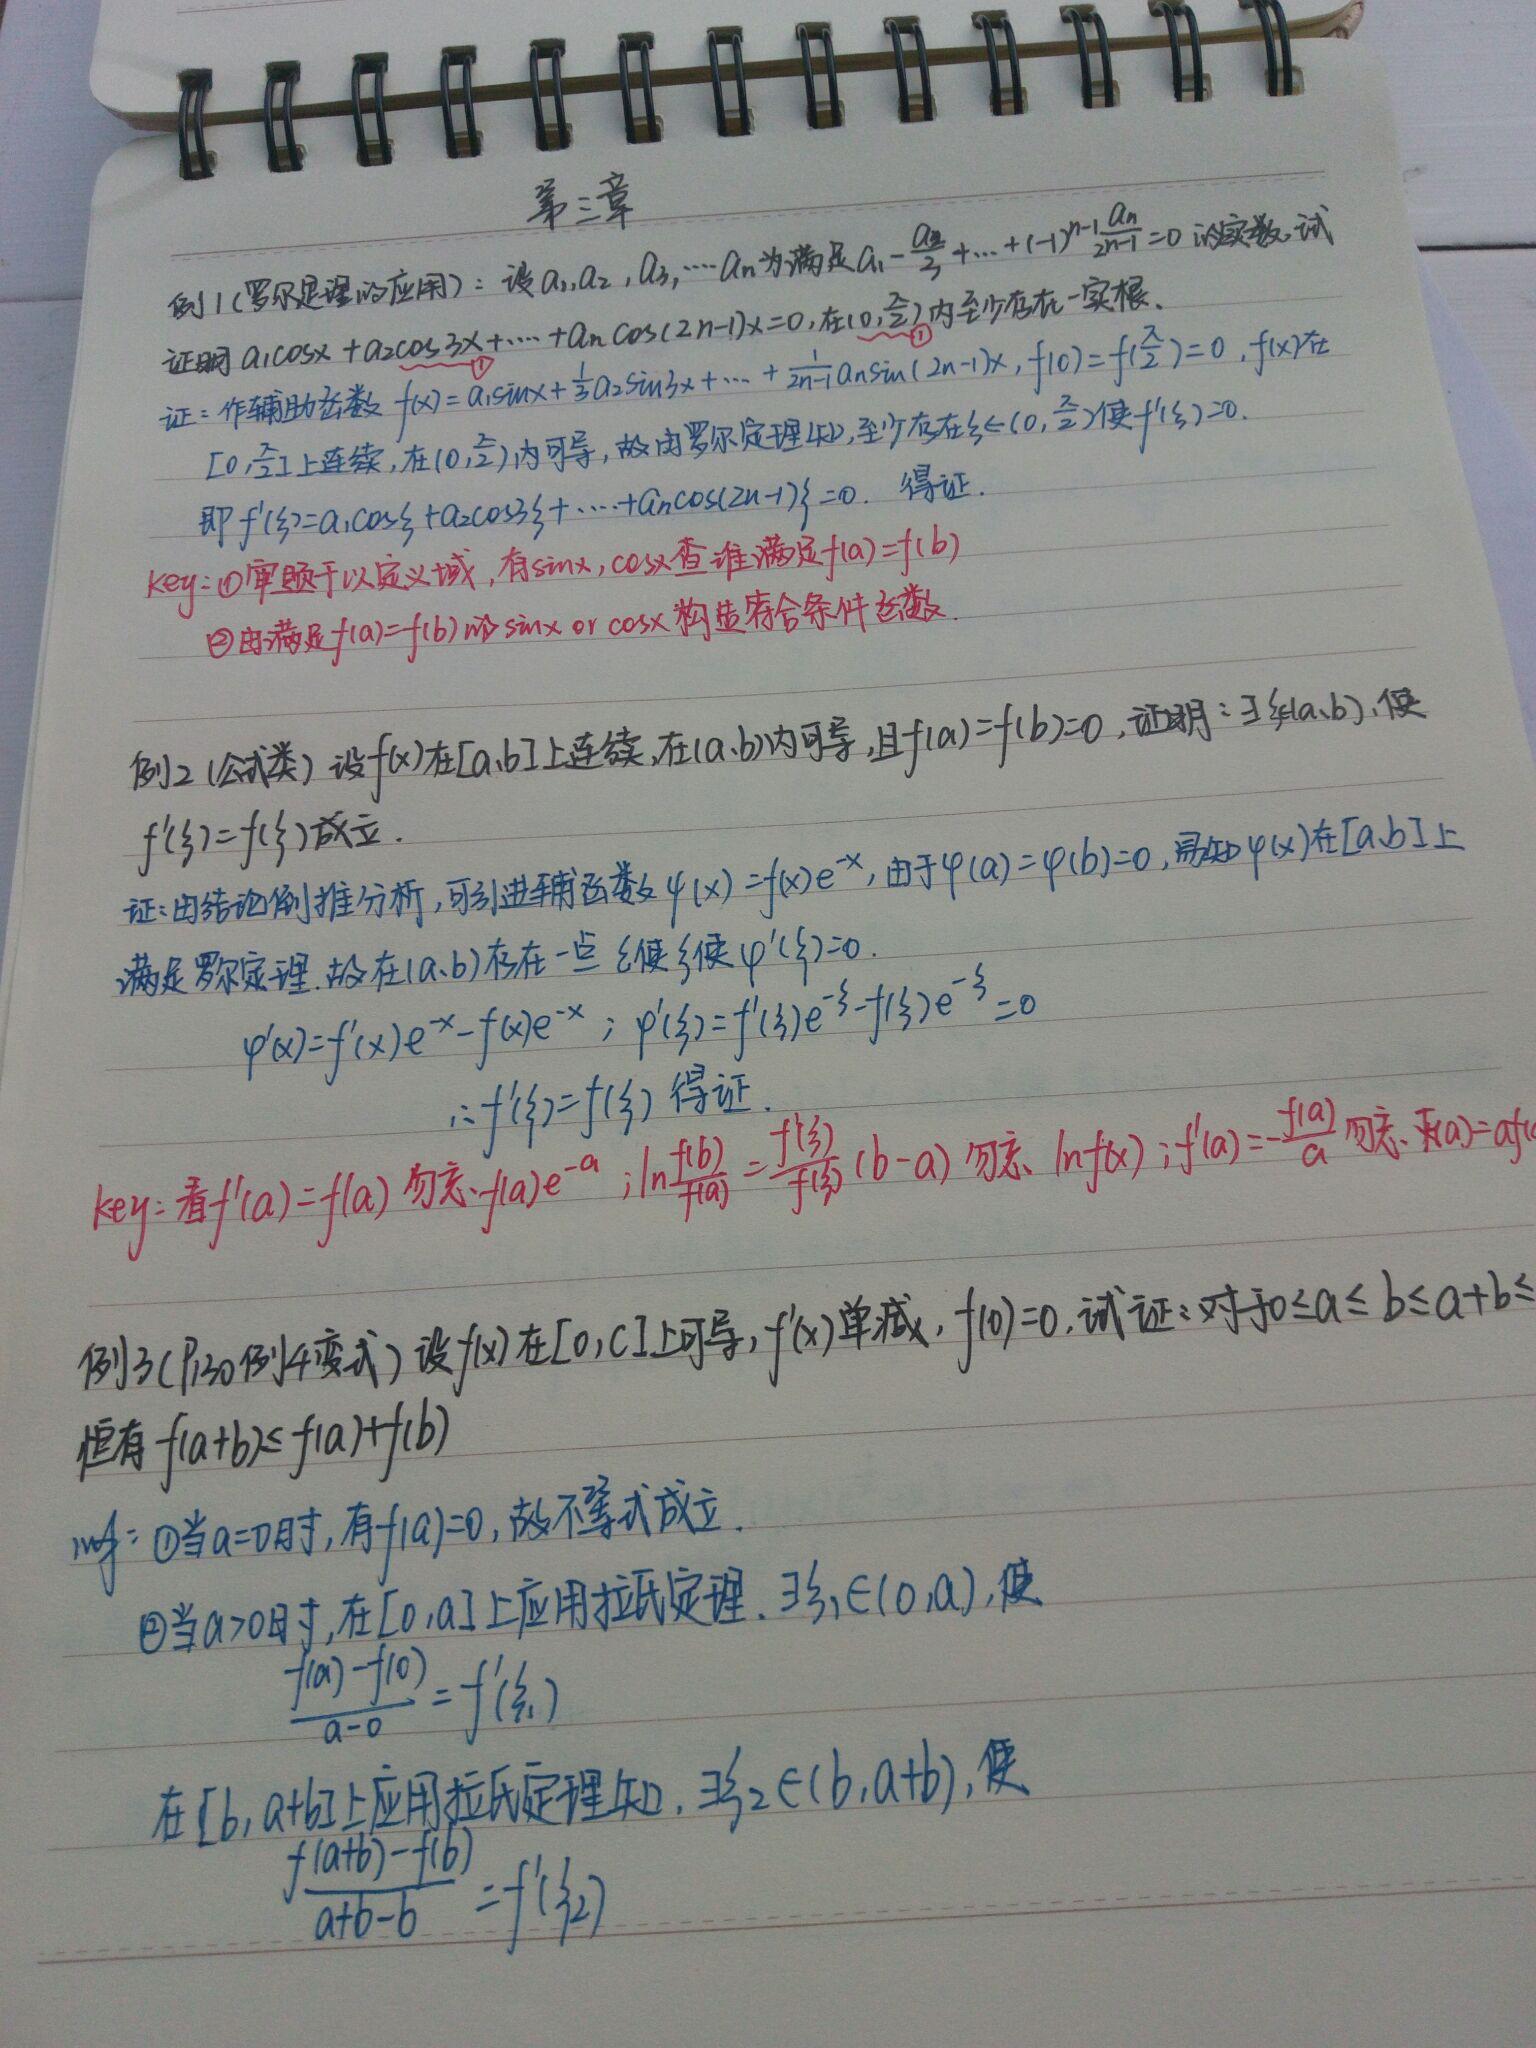 第三章
例1(罗尔定理的应用):设a₁,a₂,a₃,……aₙ为满足a₁-a₂/3+…+(-1)ⁿ⁻¹aₙ/(2n-1)=0的实数,试
证明a₁cosx+a₂cos3x+……+aₙcos(2n-1)x=0,在(0,π/2)内至少存在一实根.
① ①
证:作辅助函数 f(x)=a₁sinx+1/3a₂sin3x+…+1/(2n-1)aₙsin(2n-1)x, f(0)=f(π/2)=0, f(x)在
[0,π/2]上连续,在(0,π/2)内可导,故由罗尔定理知,至少存在ξ∈(0,π/2)使f'(ξ)=0.
即f'(ξ)=a₁cosξ+a₂cos3ξ+……+aₙcos(2n-1)ξ=0. 得证.
key:①审题于以定义域,有sinx,cosx查谁满足f(a)=f(b)
②由满足f(a)=f(b)的sinx or cosx构造符合条件函数.
例2(公式类)设f(x)在[a,b]上连续,在(a,b)内可导,且f(a)=f(b)=0,证明:∃ξ∈(a,b),使
f'(ξ)=f(ξ)成立.
证:由结论倒推分析,可引进辅函数φ(x)=f(x)e⁻ˣ,由于φ(a)=φ(b)=0,易知φ(x)在[a,b]上
满足罗尔定理.故在(a,b)存在一点ξ使ξ使φ'(ξ)=0.
φ'(x)=f'(x)e⁻ˣ-f(x)e⁻ˣ; φ'(ξ)=f'(ξ)e^-ξ-f(ξ)e^-ξ=0
∴f'(ξ)=f(ξ) 得证.
key:看f'(a)=f(a) 勿忘.f(a)e^-a;ln f(b)/f(a)=f'(ξ)/f(ξ)(b-a) 勿忘 lnf(x);f'(a)=-f(a)/a 勿忘.F(a)=af(
例3(P130例4变式)设f(x)在[0,C]上可导,f'(x)单减,f(0)=0,试证:对于0≤a≤b≤a+b≤
恒有f(a+b)≤f(a)+f(b)
①当a=0时,有f(a)=0,故不等式成立.
②当a>0时,在[0,a]上应用拉氏定理.∃ξ₁∈(0,a),使
(f(a)-f(0))/(a-0)=f'(ξ₁)
在[b,a+b]上应用拉氏定理知,∃ξ₂∈(b,a+b),使
(f(a+b)-f(b))/(a+b-b)=f'(ξ₂)